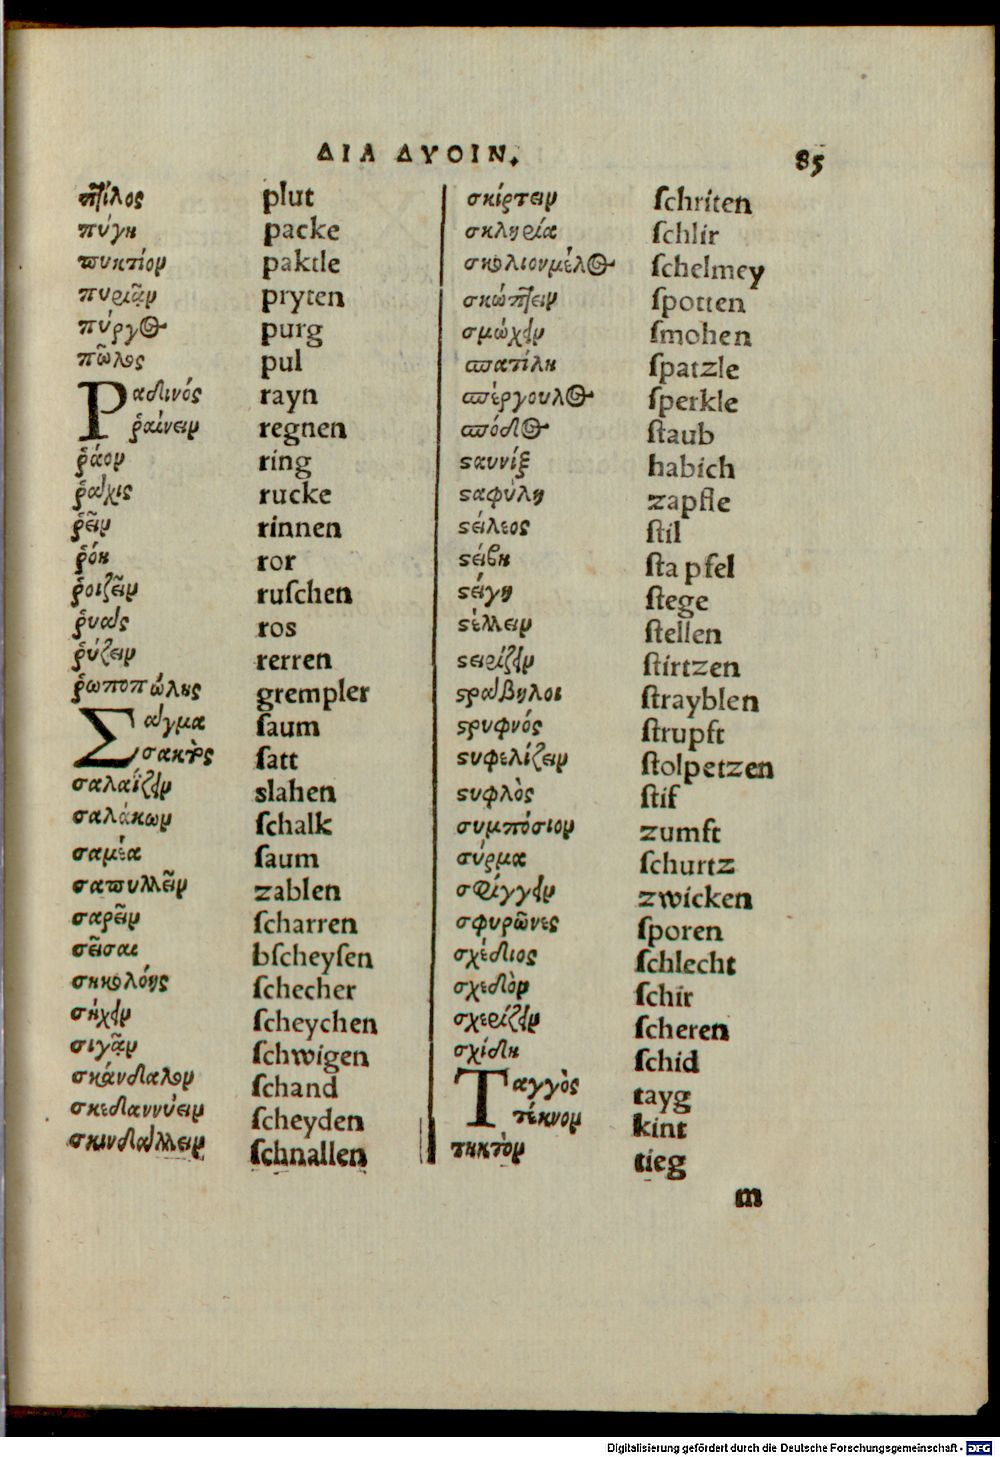 ΔΙΑ ΔΥΟΙΝ. 85
πτίλος plut
πύγη packe
πυκτίον paktle
πυριᾷν pryten
πύργος purg
πῶλος pul
Ραδινός rayn
ῥαίνειν regnen
ῥάον ring
ῥάχις rucke
ῥεῖν rinnen
ῥόη ror
ῥοιζεῖν ruſchen
ῥυάς ros
ῥύζειν rerren
ῥωποπώλης grempler
Σάγμα ſaum
σακτὸς ſatt
σαλαΐζειν slahen
σαλάκων ſchalk
σαμεία ſaum
σαπυλλεῖν zablen
σαρεῖν ſcharren
σεῖσαι bſcheyſen
σηκολόης ſchecher
σήχειν ſcheychen
σιγᾷν ſchwigen
σκάνδαλον ſchand
σκεδαννύειν ſcheyden
σκινδάλλειν ſchnallen
σκίρτειν ſchriten
σκληρία ſchlir
σκολιονμέλος ſchelmey
σκώπτειν ſpotten
σμώχειν ſmohen
σπατίλη ſpatzle
σπέργουλος ſperkle
σπόδος ſtaub
σαυνίξ habich
σαφύλη zapfle
στέλεος ſtil
στείβη ſtapfel
στέγη ſtege
στέλλειν ſtellen
στερίζειν ſtirtzen
στράβηλοι ſtrayblen
στρυφνός ſtrupft
στυφελίζειν ſtolpetzen
στυφλὸς ſtif
συμπόσιον zumft
σύρμα ſchurtz
σφίγγειν zwicken
σφυρῶνες ſporen
σχέδιος ſchlecht
σχεδὸν ſchir
σχερίζειν ſcheren
σχίδη ſchid
Ταγγὸς tayg
τέκνον kint
τηκτὸν tieg
m
Digitalisierung gefördert durch die Deutsche Forschungsgemeinschaft - DFG